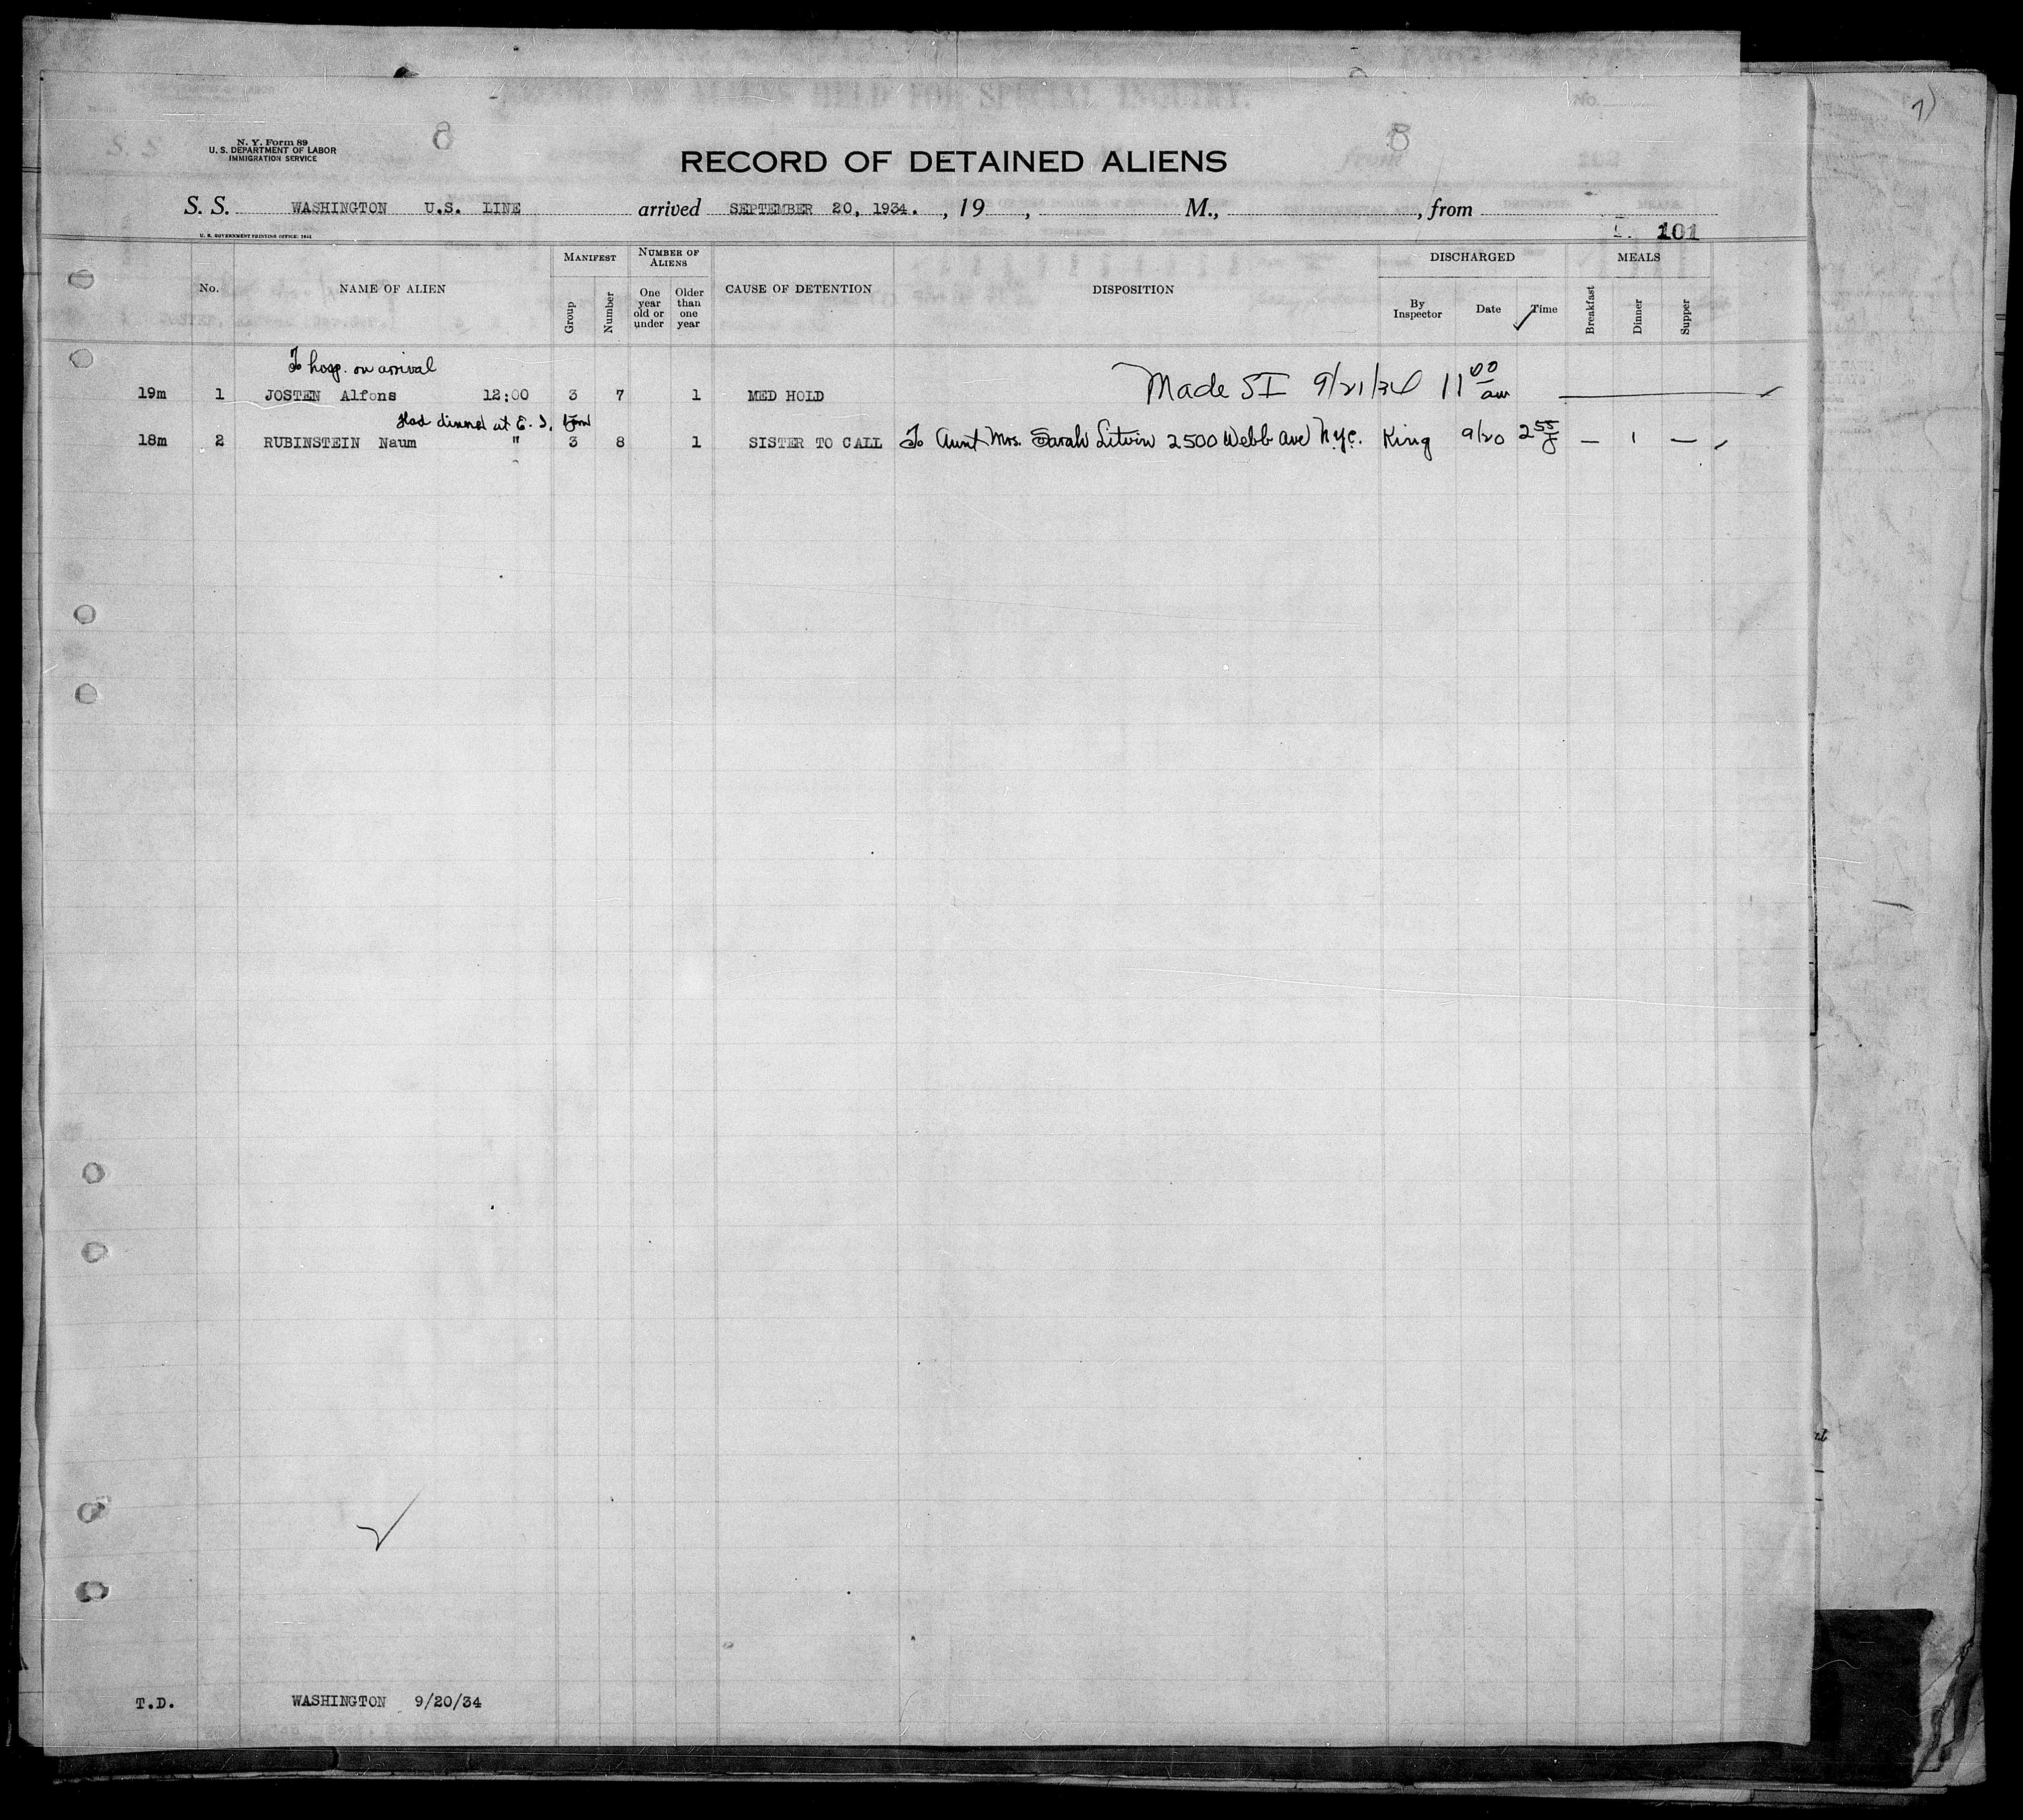 N. Y. Form 89
U. S. DEPARTMENT OF LABOR
IMMIGRATION SERVICE
8
8
RECORD OF DETAINED ALIENS
S. S. WASHINGTON U.S. LINE arrived SEPTEMBER 20, 1934. , 19 , M., , from
U. S. GOVERNMENT PRINTING OFFICE:
101
No. NAME OF ALIEN MANIFEST Group Number NUMBER OF ALIENS One year old or under Older than one year CAUSE OF DETENTION DISPOSITION DISCHARGED By Inspector Date Time MEALS Breakfast Dinner Supper
To hosp. on arrival
19m 1 JOSTEN Alfons 12:00 3 7 1 MED HOLD Made SI 9/21/34 11 00 am
Had dinner at E. I.
18m 2 RUBINSTEIN Naum " 3 8 1 SISTER TO CALL To Aunt Mrs. Sarah Litvin 2500 Webb Ave N.Y.C. King 9/20 2 55 — 1 —
T.D. WASHINGTON 9/20/34